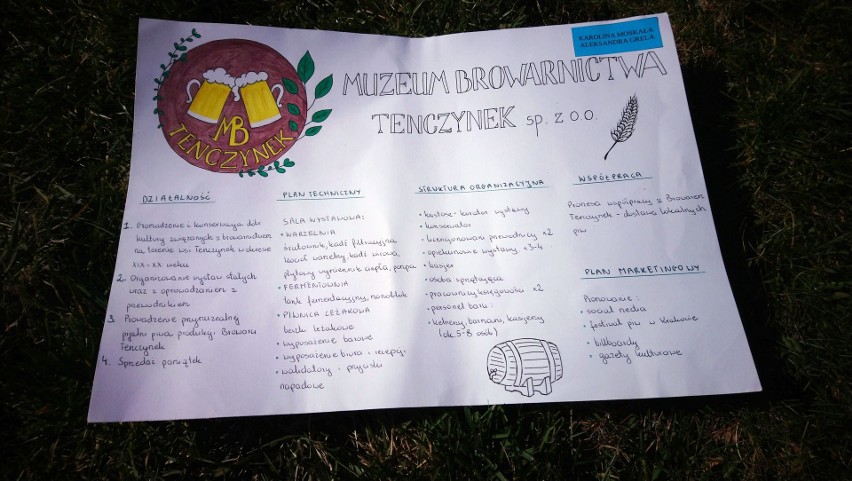 KAROLINA MOSKAŁA
ALEKSANDRA GRELA
MUZEUM BROWARNICTWA
TENCZYNEK SP. Z O.O.
MB
TENCZYNEK
DZIAŁALNOŚĆ
1. Gromadzenie i konserwacja dóbr
kultury związanych z browarnictwem
na terenie wsi Tenczynek w okresie
XIX-XX wieku
2. Organizowanie wystaw stałych
wraz z oprowadzaniem z
przewodnikiem
3. Prowadzenie przymuzealnej
pijalni piwa produkcji Browaru
Tenczynek
4. Sprzedaż pamiątek
PLAN TECHNICZNY
SALA WYSTAWOWA:
• WARZELNIA
śrutownik, kadź filtracyjna
kocioł warzelny, kadź wirowa,
płytowy wymiennik ciepła, pompa
• FERMENTOWNIA
tank fermentacyjny,
• PIWNICA LEŻAKOWA
beczki leżakowe
• wyposażenie barowe
• wyposażenie biura i recepcji
• walidatory - przyciski
napadowe
STRUKTURA ORGANIZACYJNA
• kustosz - kurator wystawy
• konserwator
• licencjonowani przewodnicy x2
• opiekunowie wystawy x3-4
• kasjer
• osoba sprzątająca
• pracownicy księgowości x2
• personel baru:
• kelnerzy, barmani, kasjerzy
(ok. 5-8 osób)
WSPÓŁPRACA
Pionierska współpraca z Browarem
Tenczynek - dostawa lokalnych
piw
PLAN MARKETINGOWY
Planowane:
• social media
• festiwal piw w Krakowie
• billboardy
• gazety kulturowe